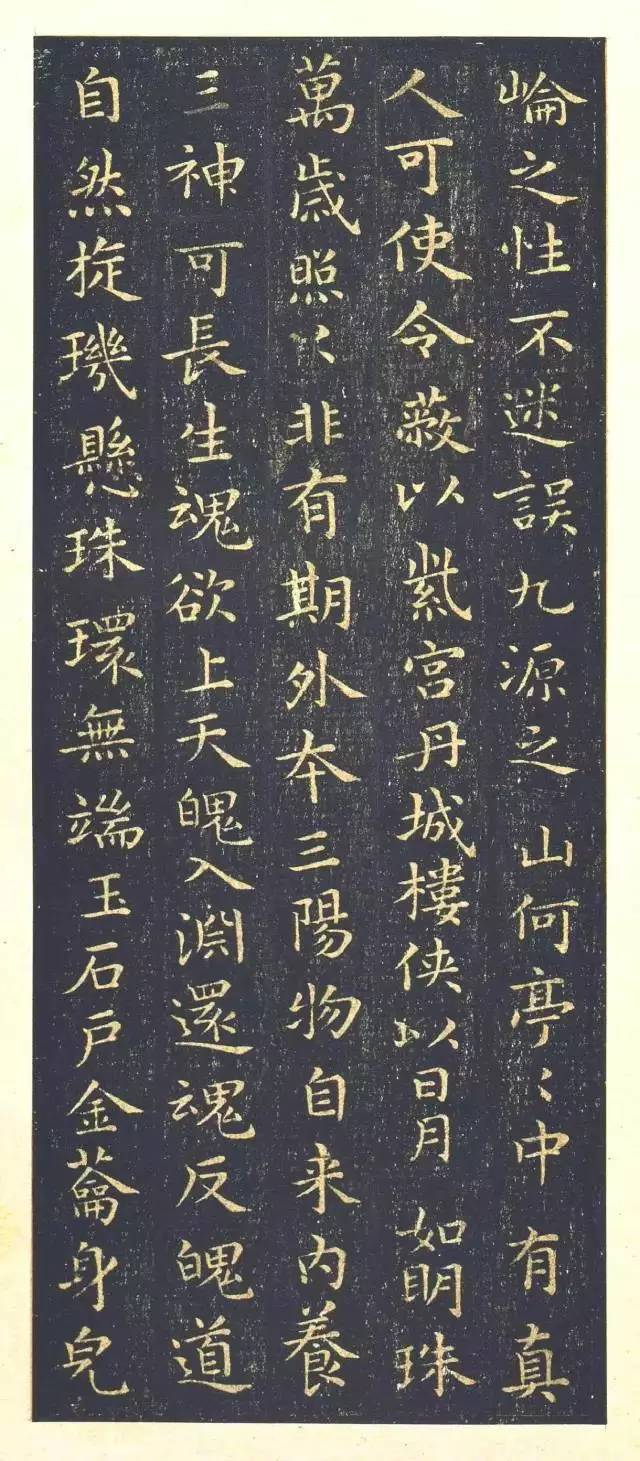 崘之性不迷誤九源之山何亭〻中有真
人可使令蔽以紫宫丹城樓侠以日月如明珠
萬歲照以非有期外夲三陽物自来内養
三神可長生魂欲上天魄入淵還魂反魄道
自然㫌璣懸珠環無端玉石戶金蘥身皃